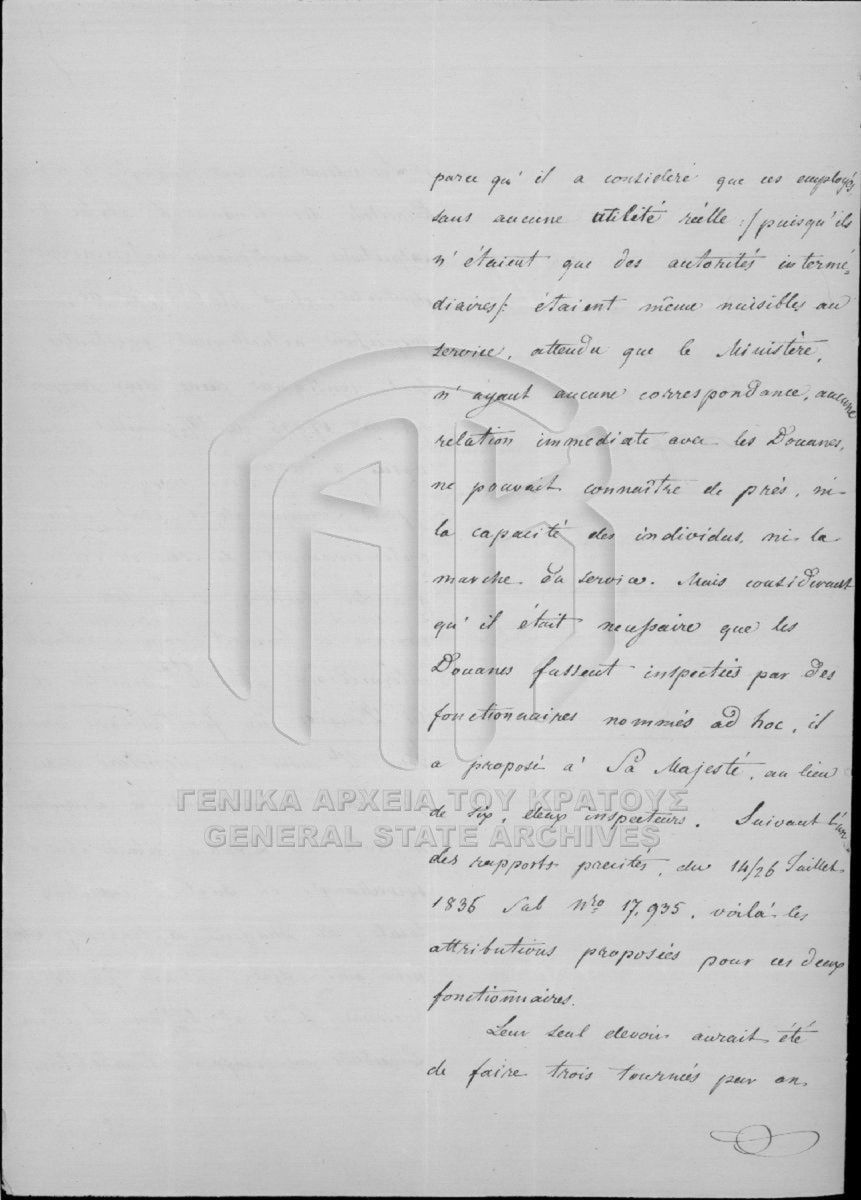 parce qu'il a considéré que ces employés
sans aucune utilité réelle :/ puisqu'ils
n'étaient que des autorités intermé-
diaires /: étaient même nuisibles au
service, attendu que le Ministère,
n'ayant aucune correspondance, aucune
relation immediate avec les Douanes,
ne pouvait connaître de près, ni
la capacité des individus, ni la
marche du service. Mais considerant
qu'il était necessaire que les
Douanes fussent inspectées par des
fonctionnaires nommés ad hoc, il
a proposé à Sa Majesté, au lieu
de six, deux inspecteurs. Suivant l'un
des rapports precités, du 14/26 Juillet
1836 sub Nro 17,935, voilà les
attributions proposées pour ces deux
fonctionnaires.
Leur seul devoir aurait été
de faire trois tournées par an
ΓΕΝΙΚΑ ΑΡΧΕΙΑ ΤΟΥ ΚΡΑΤΟΥΣ
GENERAL STATE ARCHIVES